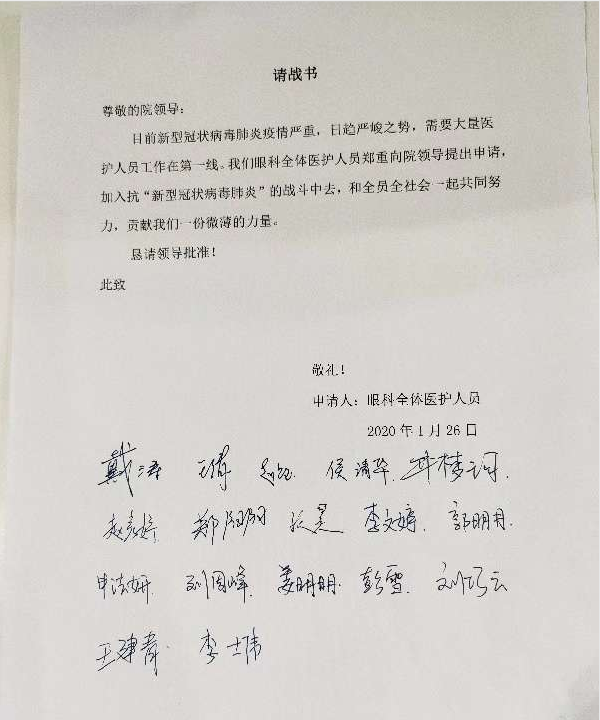 请战书
尊敬的院领导：
日前新型冠状病毒肺炎疫情严重，日趋严峻之势，需要大量医
护人员工作在第一线。我们眼科全体医护人员郑重向院领导提出申请，
加入抗“新型冠状病毒肺炎”的战斗中去，和全员全社会一起共同努
力，贡献我们一份微薄的力量。
恳请领导批准！
此致
敬礼！
申请人：眼科全体医护人员
2020年1月26日
戴涛 王倩 侯清华
郑阳阳 李文婷 郭明月
申法妍 刘国峰 姜明明 彭雪 刘巧云
王建青 李士伟